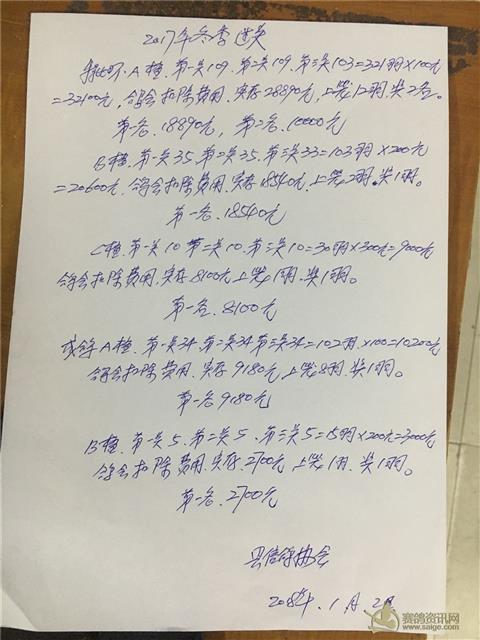 2017年冬季过关
特比环.A檔.第一关109.第二关109.第三关103=321羽×100元
=32100元,鸽会扣除费用.实存28890元,上笼12羽.奖2名。
第一名.18890元,第二名.10000元
B檔.第一关35.第二关35.第三关33=103羽×200元
=20600元.鸽会扣除费用.实存18540元,上笼2羽.奖1羽。
第一名.18540元
C檔.第一关10第二关10.第三关10=30羽×300元=9000元
鸽会扣除费用.实存8100元上笼1羽.奖1羽。
第一名.8100元
成鸽A檔.第一关34.第二关34第三关34=102羽×100=10200元
鸽会扣除费用.实存9180元,上笼8羽.奖1羽。
第一名9180元
B檔.第一关5.第二关5.第三关5=15羽×200元=3000元
鸽会扣除费用.实存2700元上笼1羽.奖1羽。
第一名.2700元
县信鸽协会
2018年.1月2日
赛鸽资讯网
www.saige.com